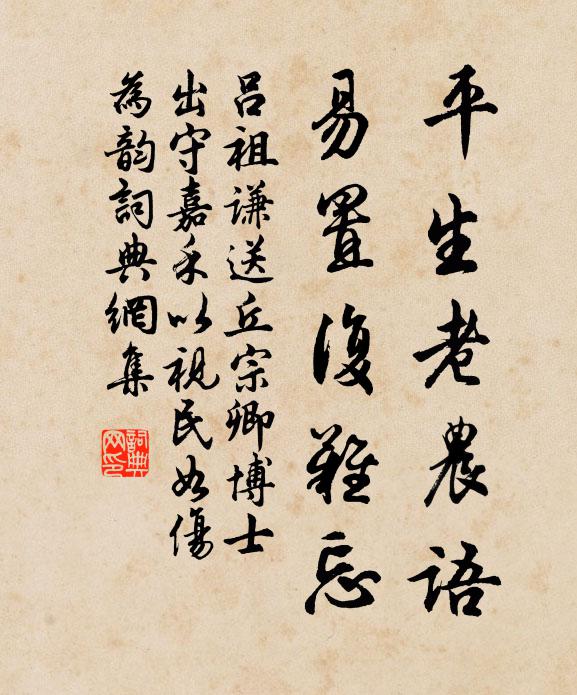 平生老農語
易置復難忘
呂祖謙送丘宗卿博士
出守嘉禾以視民如傷
為韵詞典網集
詞典网印